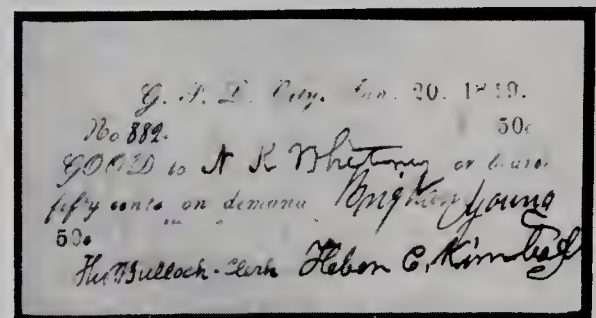 G. S. L. City, Jan. 20. 1849.
No 882. 50c
GOOD to N K Whitney or bearer
fifty cents on demand Brigham Young
50c
Tho Bullock - Clerk Heber C. Kimball